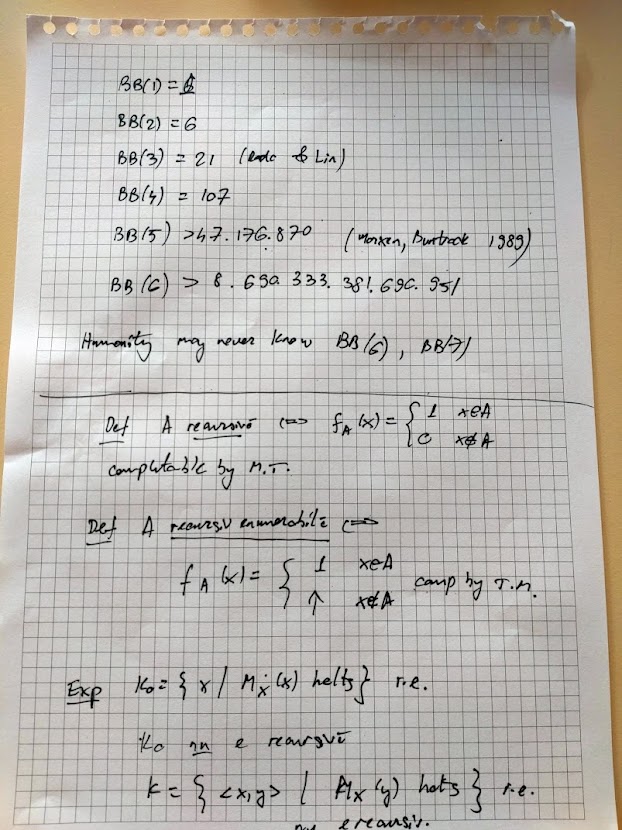 BB(1) = 1
BB(2) = 6
BB(3) = 21 (Rado & Lin)
BB(4) = 107
BB(5) > 47.176.870 (Marxen, Buntrock 1989)
BB(6) > 8.690.333.381.690.951
Humanity may never know BB(6), BB(7)
Def A recursivă <=> f_A(x) = { 1 x∈A
0 x∉A
computable by M.T.
Def A recursiv enumerabilă <=>
f_A(x) = { 1 x∈A
↑ x∉A comp by T.M.
Exp K₀ = { x / Mₓ(x) halts } r.e.
K₀ nu e recursivă
K = { <x,y> | Mₓ(y) halts } r.e.
nu e recursiv.